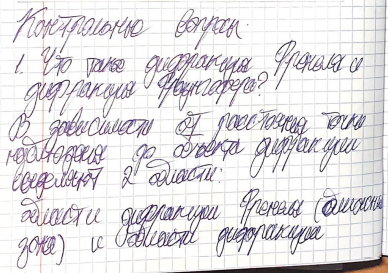 Контрольные вопросы.
1. Что такое дифракция Френеля и
дифракция Фраунгофера?
В зависимости от расстояния точки
наблюдения до объекта дифракции
выделяют 2 области:
области дифракции Френеля (ближняя
зона) и области дифракции